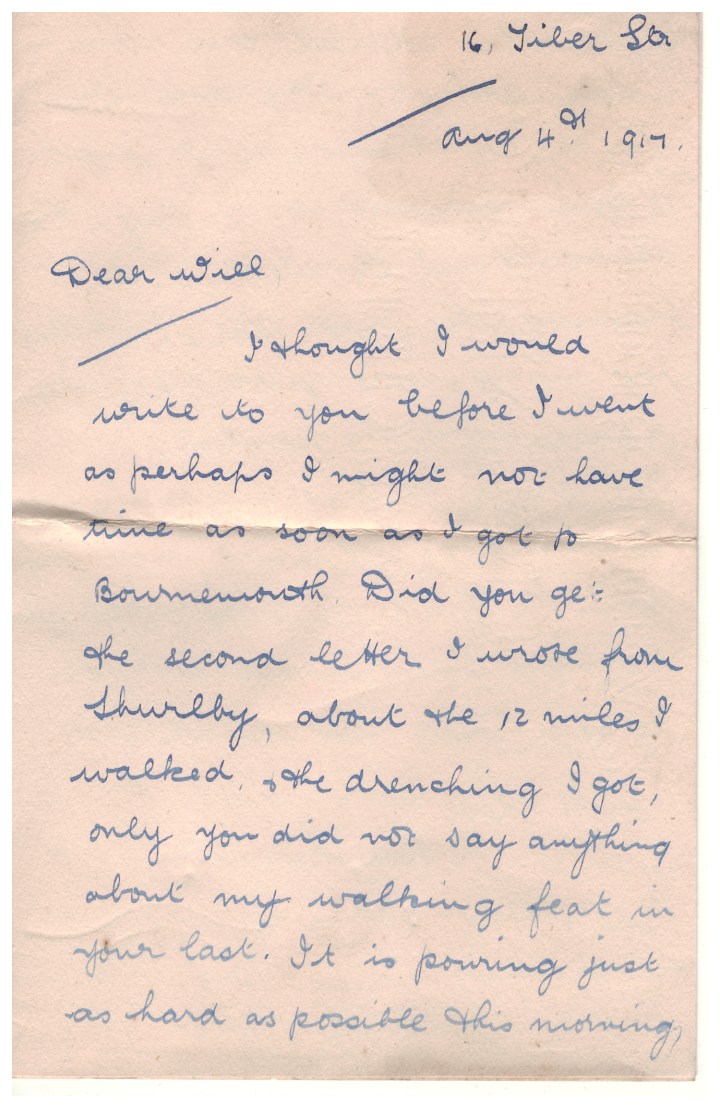 16, Tiber Str
Aug 4th 1917.
Dear Will,
I thought I would
write to you before I went
as perhaps I might not have
time as soon as I got to
Bournemouth. Did you get
the second letter I wrote from
Thurlby, about the 12 miles I
walked, & the drenching I got,
only you did not say anything
about my walking feat in
your last. It is pouring just
as hard as possible this morning,